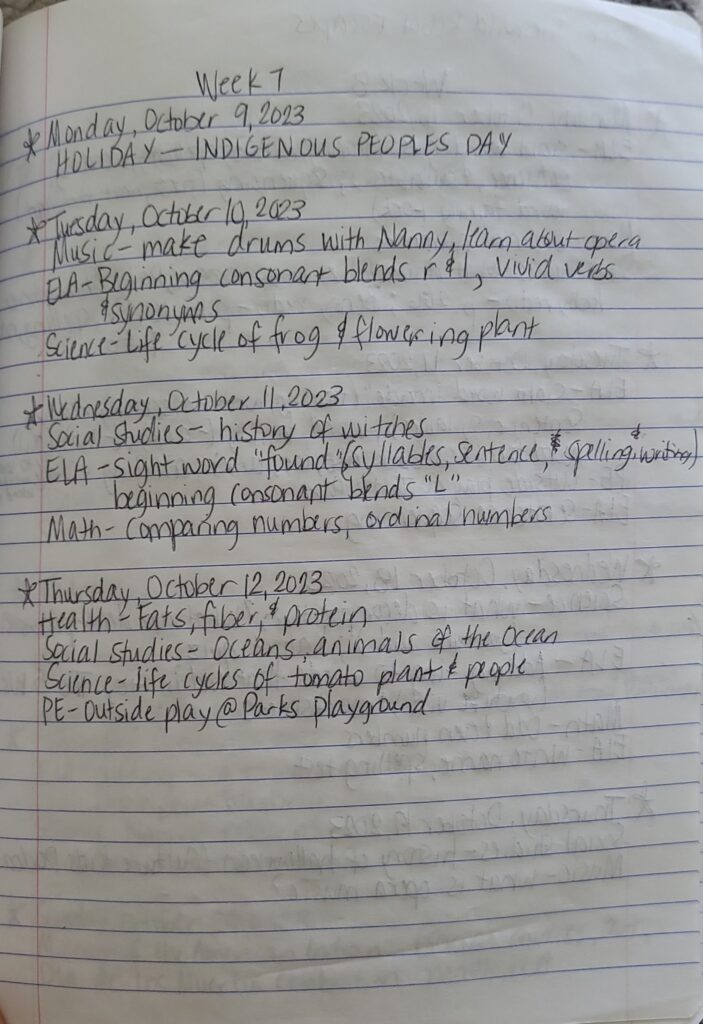 Week 7
*Monday, October 9, 2023
HOLIDAY - INDIGENOUS PEOPLES DAY
*Tuesday, October 10, 2023
Music - make drums with Nanny, learn about opera
ELA - Beginning consonant blends r & l, vivid verbs
& synonyms
Science - life cycle of frog & flowering plant
*Wednesday, October 11, 2023
Social Studies - history of witches
ELA - sight word "found" (syllables, sentence, & spelling & writing)
beginning consonant blends "L"
Math - comparing numbers, ordinal numbers
*Thursday, October 12, 2023
Health - Fats, fiber, & protein
Social Studies - Oceans, animals of the Ocean
Science - life cycles of tomato plant & people
PE - outside play @ Parks Playground